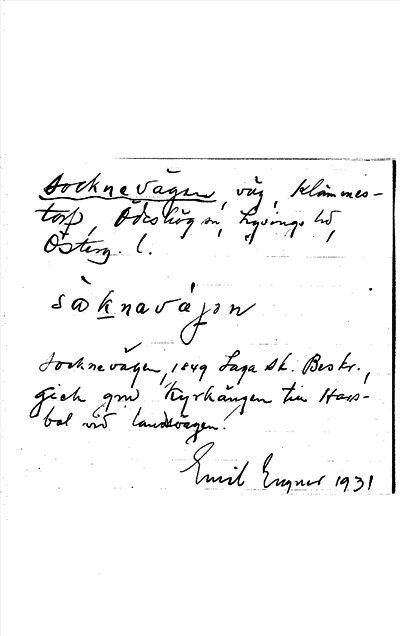 Socknevägen, väg, Klämmes-
torp, Ödeshög sn, Lysings hd,
Österg. l.
såknavägən
Socknevägen, 1849 Laga sk. Beskr.,
gick gm Kyrkängen till Hars-
bol vid landsvägen.
Emil 1931